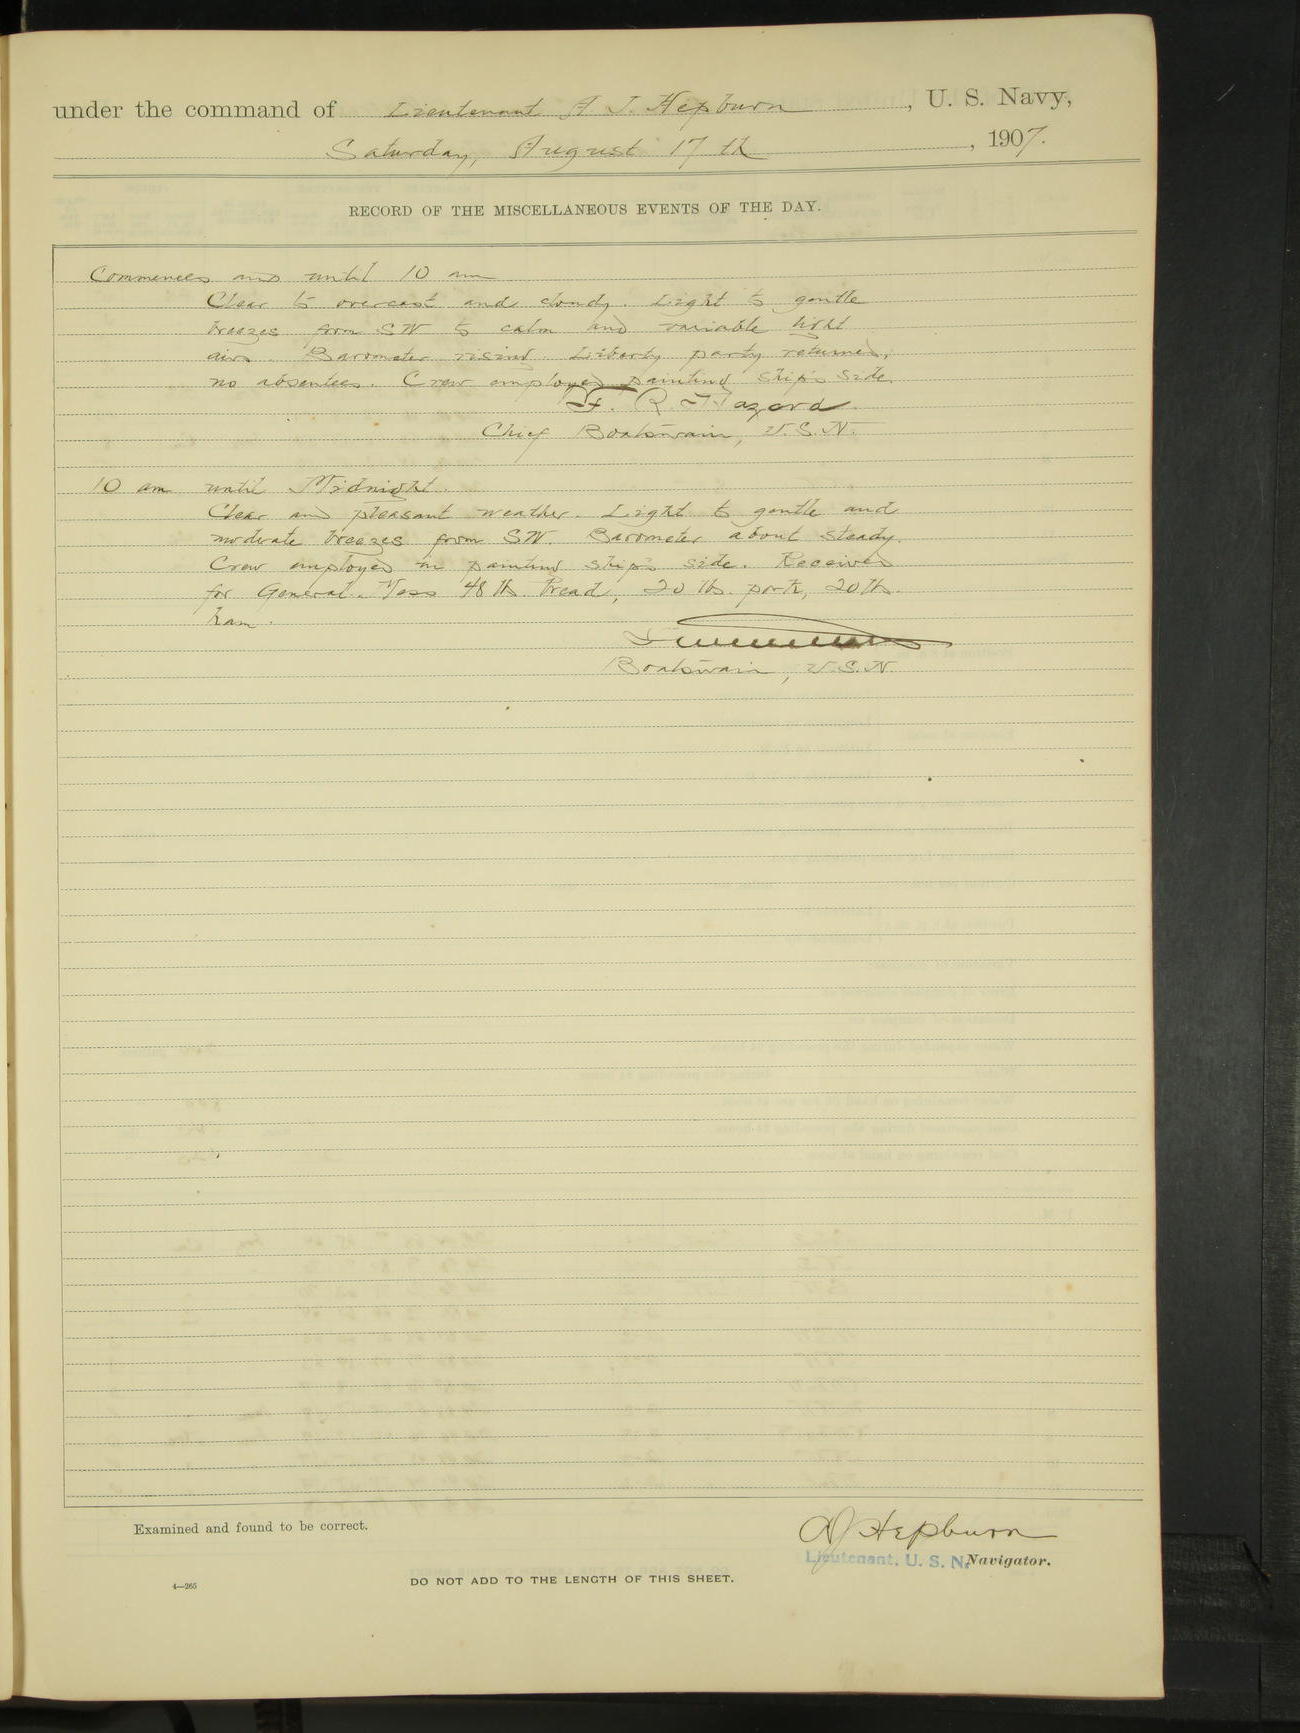 under the command of Lieutenant A J. Hepburn, U. S. Navy,
Saturday, August 17 th, 1907.
RECORD OF THE MISCELLANEOUS EVENTS OF THE DAY.
Commences and until 10 am
Clear to overcast and cloudy. Light to gentle
breezes from SW to calm and variable light
airs. Barometer rising. Liberty party returned,
no absentees. Crew employed painting ship's side.
F. R. Hazard
Chief Boatswain, U.S.N.
10 am until Midnight.
Clear and pleasant weather. Light to gentle and
moderate breezes from SW. Barometer about steady.
Crew employed in painting ship's side. Received
for General Mess 48 lbs. bread, 20 lbs. pork, 20 lbs.
ham.
Boatswain, U.S.N.
Examined and found to be correct.
AJ Hepburn
Lieutenant, U. S. N. Navigator.
4—265
DO NOT ADD TO THE LENGTH OF THIS SHEET.